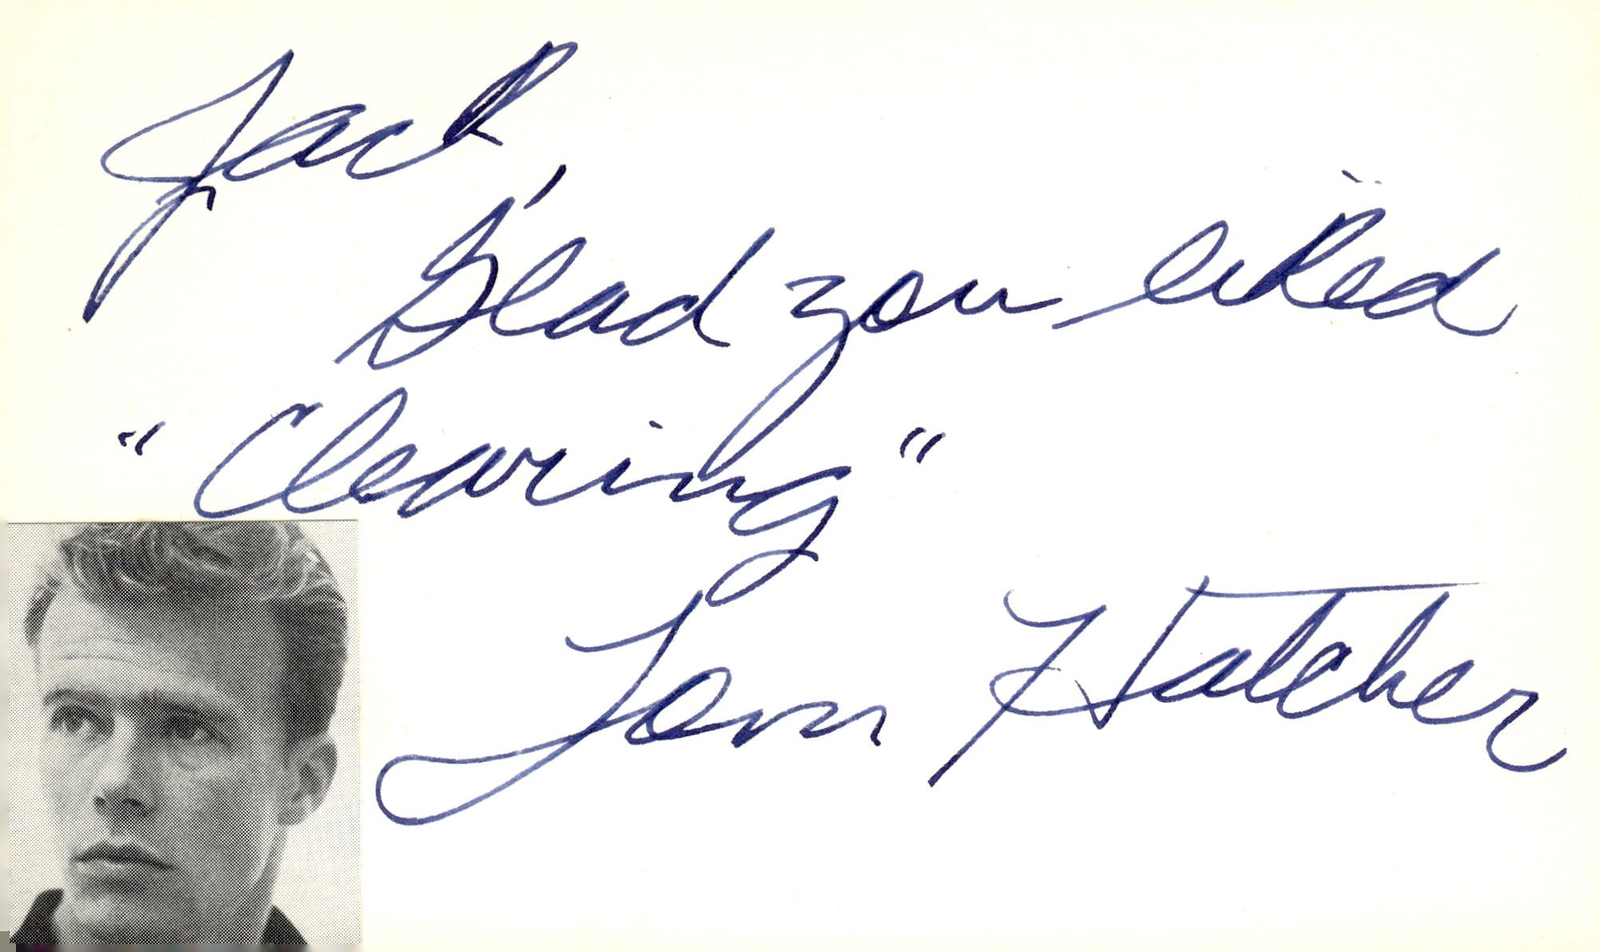 Jack,
Glad you liked
"Clearing"
Tom Hatcher